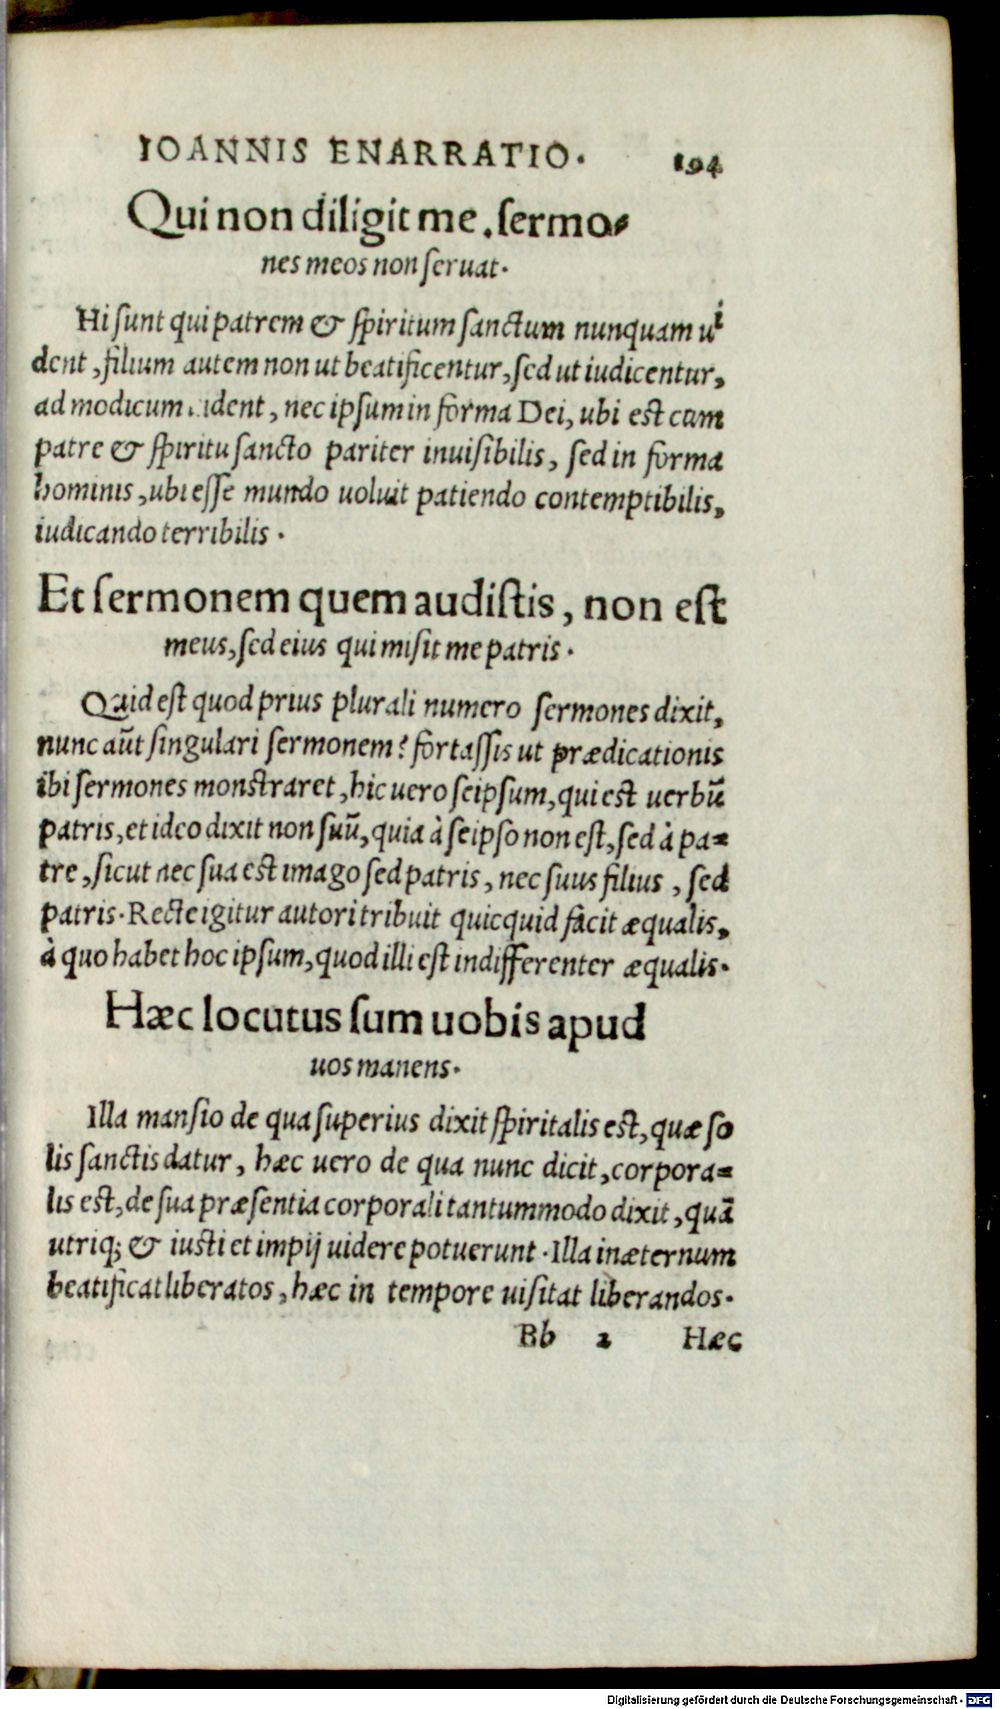 IOANNIS ENARRATIO. 194
Qui non diligit me, sermo-
nes meos non seruat.
Hi sunt qui patrem & spiritum sanctum nunquam ui
dent, filium autem non ut beatificentur, sed ut iudicentur,
ad modicum uident, nec ipsum in forma Dei, ubi est cum
patre & spiritu sancto pariter inuisibilis, sed in forma
hominis, ubi esse mundo uoluit patiendo contemptibilis,
iudicando terribilis.
Et sermonem quem audistis, non est
meus, sed eius qui misit me patris.
Quid est quod prius plurali numero sermones dixit,
nunc aūt singulari sermonem? fortassis ut prædicationis
ibi sermones monstraret, hic uero seipsum, qui est uerbū
patris, et ideo dixit non suū, quia à seipso non est, sed à pa-
tre, sicut nec sua est imago sed patris, nec suus filius, sed
patris. Recte igitur autori tribuit quicquid facit æqualis,
à quo habet hoc ipsum, quod illi est indifferenter æqualis.
Hæc locutus sum uobis apud
uos manens.
Illa mansio de qua superius dixit spiritalis est, quæ so
lis sanctis datur, hæc uero de qua nunc dicit, corpora-
lis est, de sua præsentia corporali tantummodo dixit, quā
utriq; & iusti et impij uidere potuerunt. Illa in æternum
beatificat liberatos, hæc in tempore uisitat liberandos.
Bb 2 Hæc
Digitalisierung gefördert durch die Deutsche Forschungsgemeinschaft - DFG